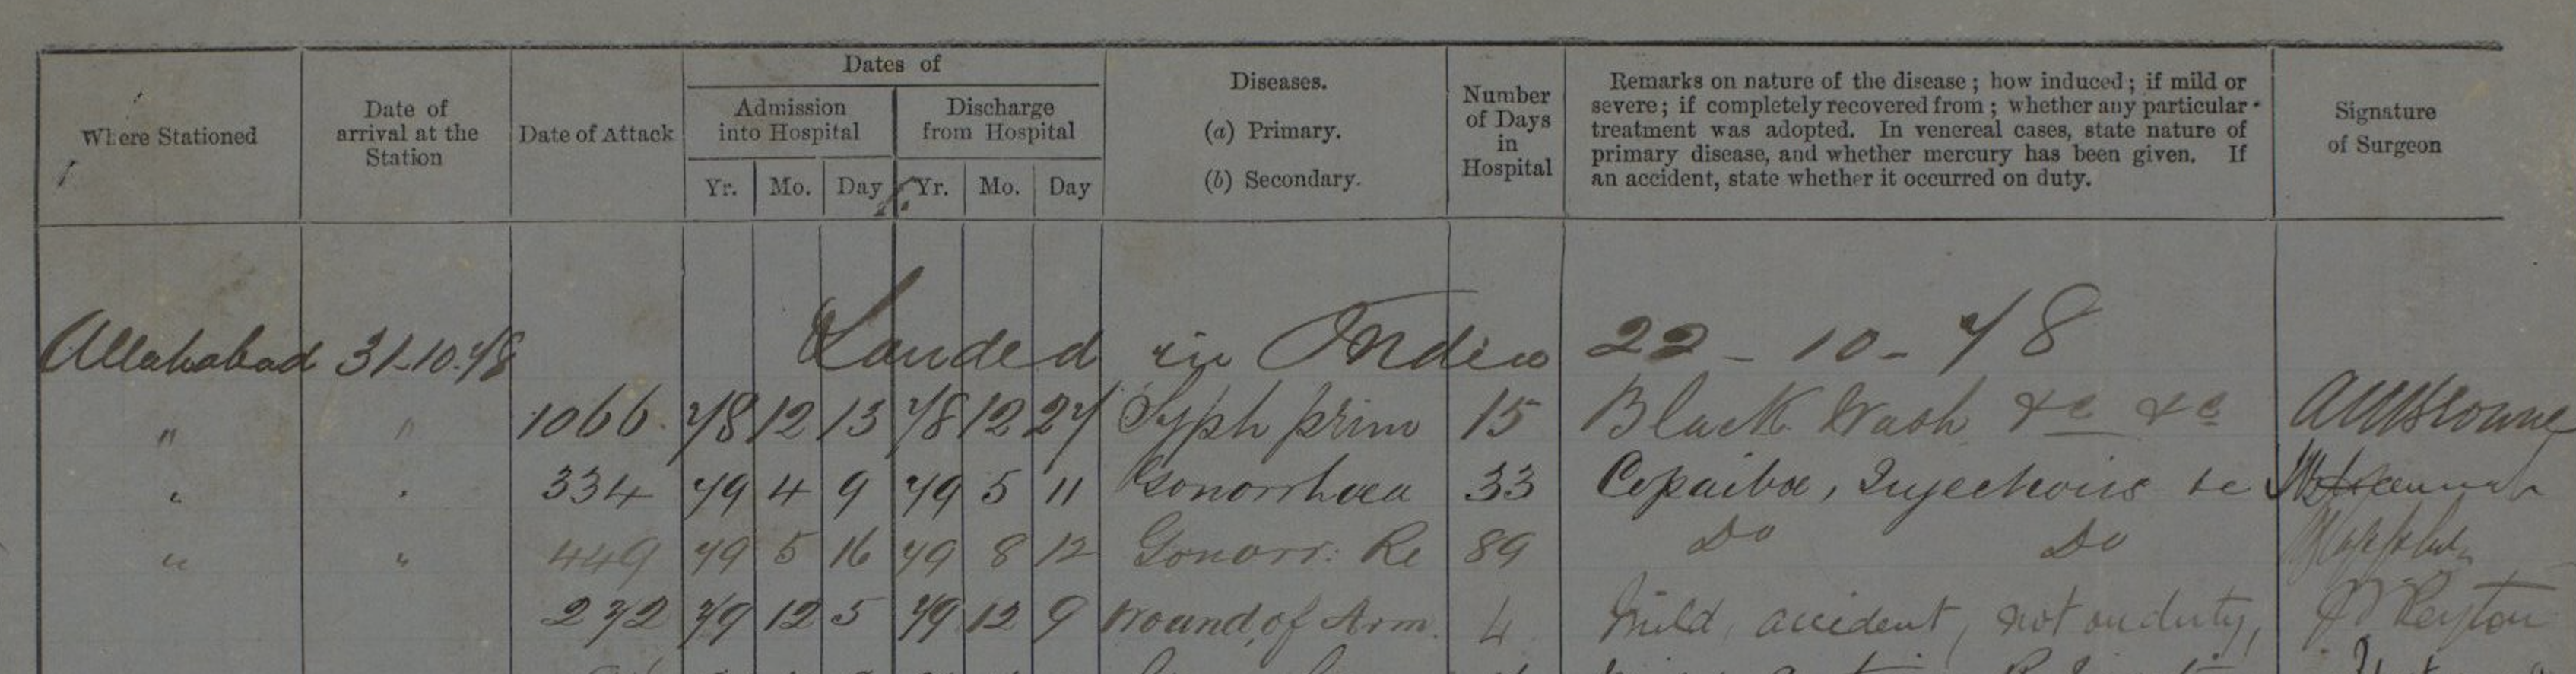 Where Stationed
Date of arrival at the Station
Date of Attack
Dates of
Admission into Hospital
Discharge from Hospital
Yr. Mo. Day Yr. Mo. Day
Diseases.
(a) Primary.
(b) Secondary.
Number of Days in Hospital
Remarks on nature of the disease; how induced; if mild or
severe; if completely recovered from; whether any particular
treatment was adopted. In venereal cases, state nature of
primary disease, and whether mercury has been given. If
an accident, state whether it occurred on duty.
Signature of Surgeon
Allahabad 31-10-78 Landed in India 22-10-78
" " 1066 78 12 13 78 12 27 Syph prim 15 Black Wash &c &c
" " 334 79 4 9 79 5 11 Gonorrhoea 33 Copaiba, Injections &c
" " 449 79 5 16 79 8 12 Gonorr: Re 89 Do Do
272 79 12 5 79 12 9 Wound of Arm. 4 Mild, accident, not on duty,